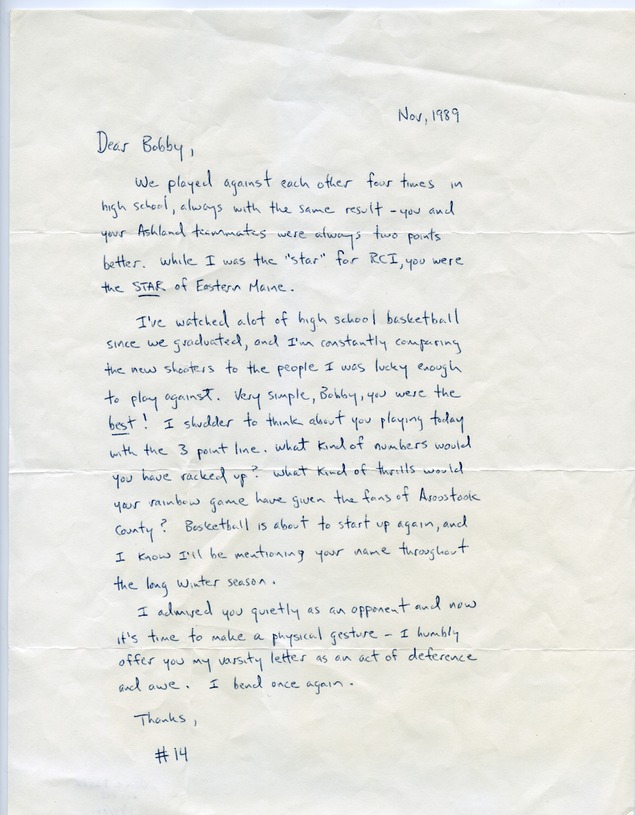 Nov, 1989
Dear Bobby,
We played against each other four times in
high school, always with the same result - you and
your Ashland teammates were always two points
better. While I was the "star" for RCI, you were
the STAR of Eastern Maine.
I've watched alot of high school basketball
since we graduated, and I'm constantly comparing
the new shooters to the people I was lucky enough
to play against. Very simple, Bobby, you were the
best! I shudder to think about you playing today
with the 3 point line. What kind of numbers would
you have racked up? What kind of thrills would
your rainbow game have given the fans of Aroostook
County? Basketball is about to start up again, and
I know I'll be mentioning your name throughout
the long winter season.
I admired you quietly as an opponent and now
it's time to make a physical gesture - I humbly
offer you my varsity letter as an act of deference
and awe. I bend once again.
Thanks,
#14